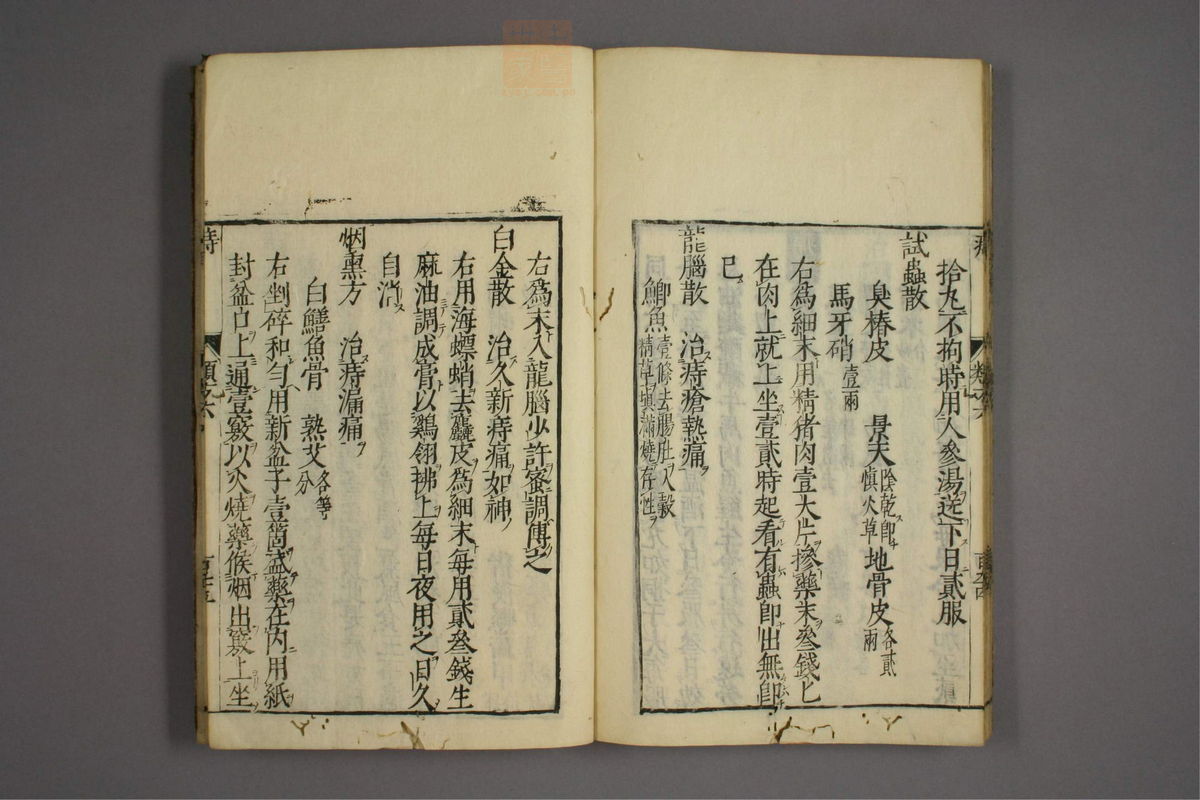 拾丸不拘時用人參湯送下日貳服
試蟲散
臭椿皮 景天陰乾即愼火草 地骨皮各貳兩
馬牙硝壹兩
右為細末用精猪肉壹大片摻藥末叄錢匕
在肉上就上坐壹貳時起看有蟲即出無即
已
龍腦散 治痔瘡熱痛
鯽魚壹條去腸肚入穀精草塡滿燒存性
右為末入龍腦少許蜜調傅之
白金散 治久新痔痛如神
右用海螵蛸去麤皮為細末每用貳叄錢生
麻油調成膏以鷄翎拂上每日夜用之日久
自消
烟熏方 治痔漏痛
白鱔魚骨 熟艾各等分
右剉碎和勻用新盆子壹箇盛藥在內用紙
封盆口上通壹竅以火燒藥候烟出竅上坐